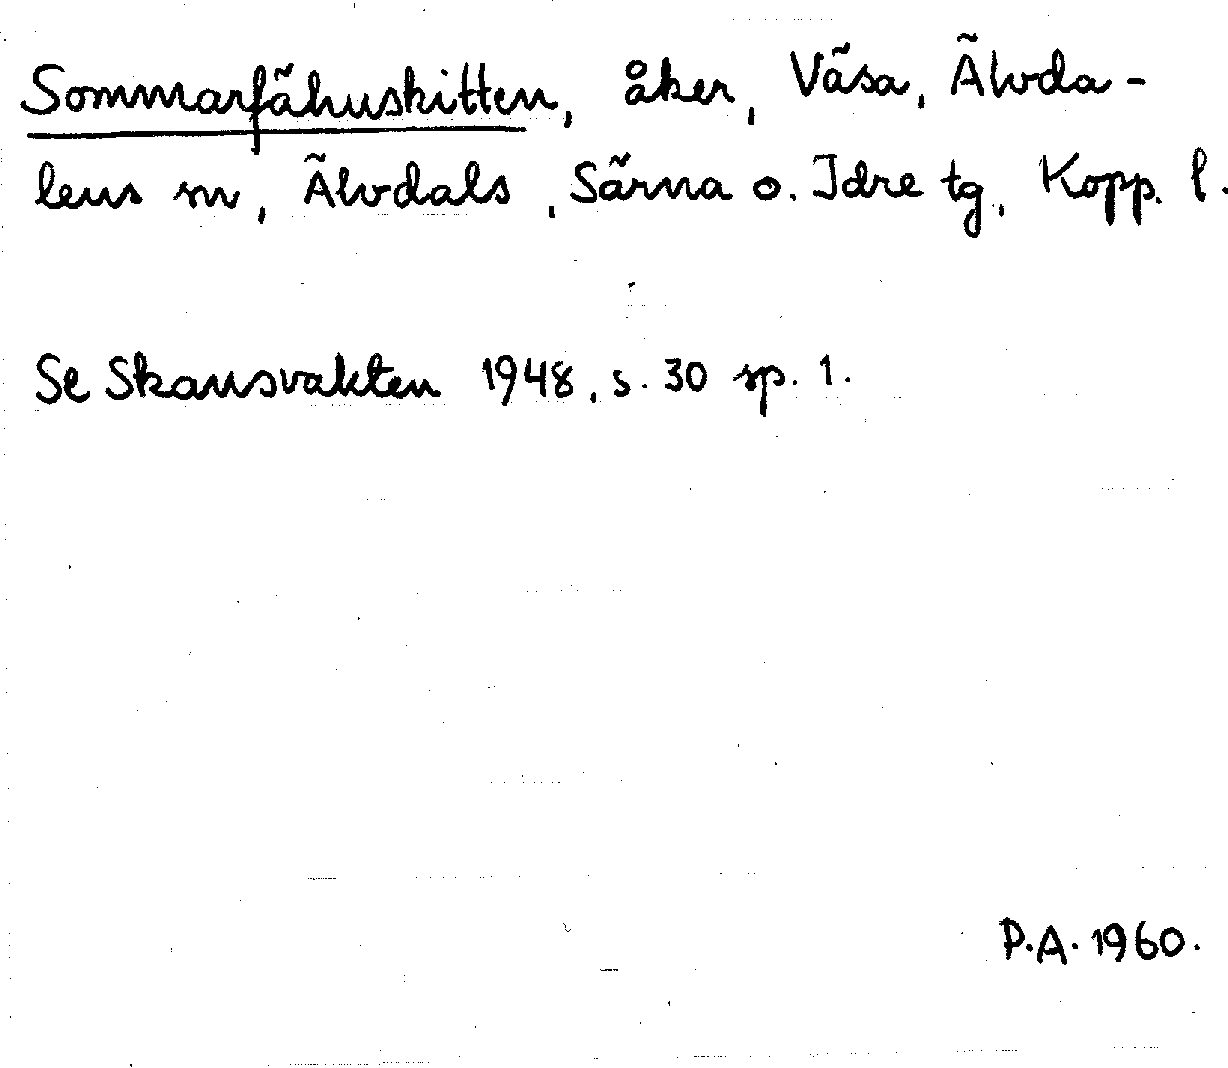 Sommarfähuskitten, åker, Väsa, Älvda-
lens sn, Älvdals, Särna o. Idre tg, Kopp. l.
Se Skansvakten 1948, s. 30 sp. 1.
P.A. 1960.